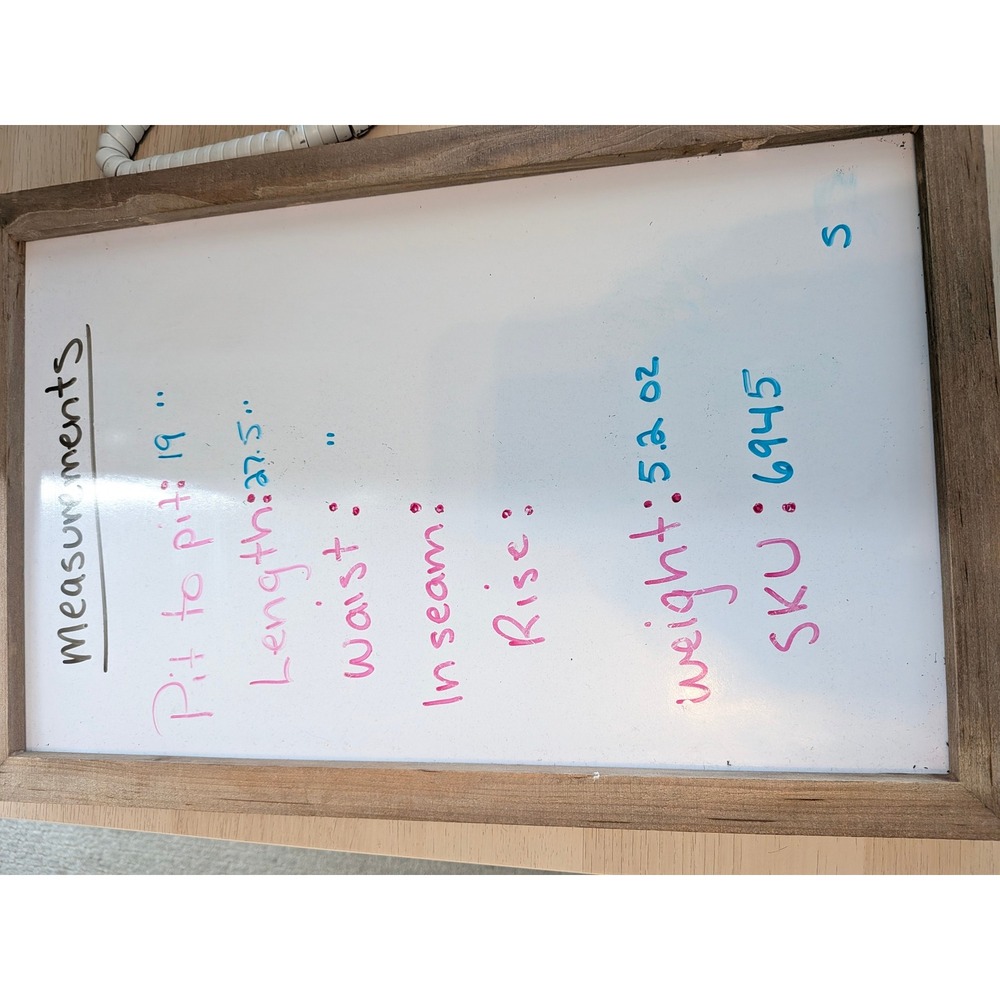 Measurements
Pit to pit: 19 "
Length: 27.5"
Waist: "
Inseam:
Rise:
Weight: 5.2 oz
SKU: 6945
S